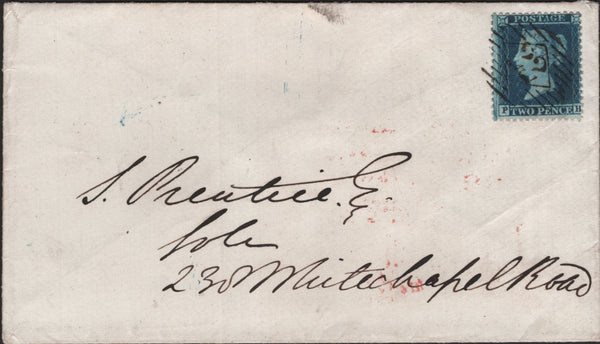 POSTAGE
P TWO PENCE H
S. Prentice. Esq
Solr
230 Whitechapel Road